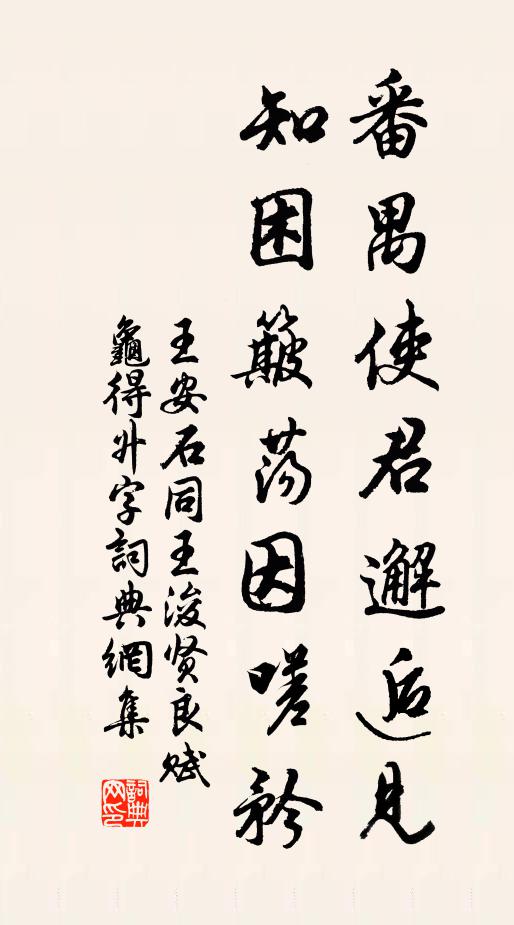 番禺使君邂逅見
知困簸荡因嗟矜
王安石同王浚贤良赋
龜得升字詞典網集
詞典
网印